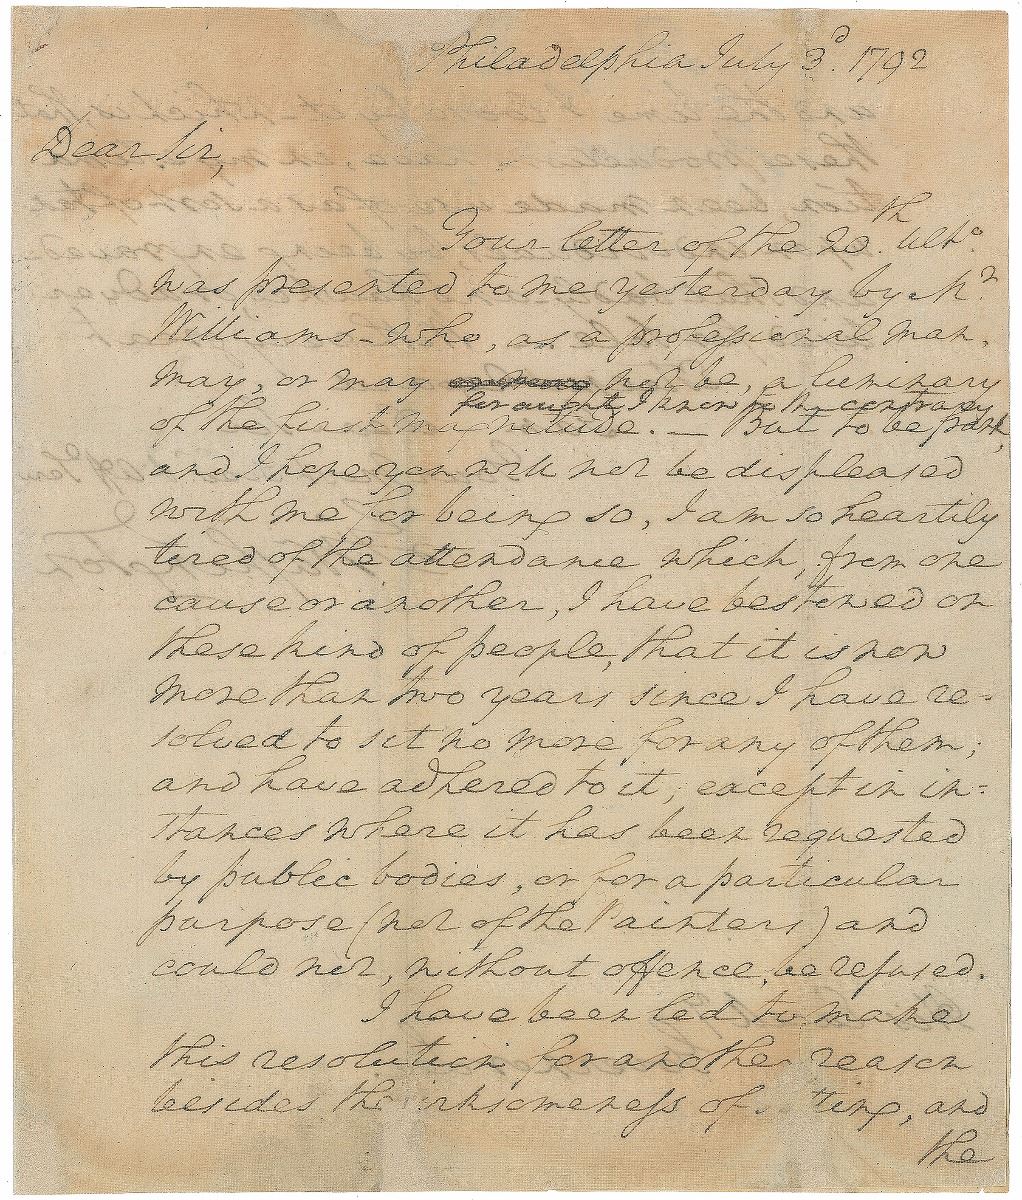 Philadelphia July 3d. 1792
Dear Sir,
Your letter of the 20th. Ulto.
was presented to me yesterday by Mr.
Williams - who, as a professional man,
may, or may not be, a luminary
for aught I know to the contrary
of the first magnitude. — But to be frank,
and I hope you will not be displeased
with me for being so, I am so heartily
tired of the attendance which, from one
cause or another, I have bestowed on
these kind of people, that it is now
more than two years since I have re-
solved to sit no more for any of them;
and have adhered to it; except in in-
stances where it has been requested
by public bodies, or for a particular
purpose (not of the Painters) and
could not, without offence, be refused.
I have been led to make
this resolution for another reason
besides the irksomeness of sitting, and
the